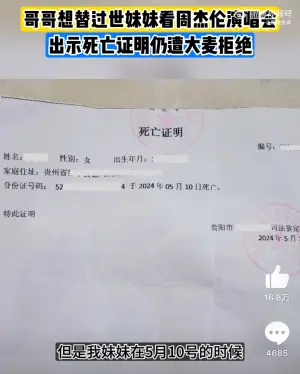 哥哥想替过世妹妹看周杰伦演唱会
出示死亡证明仍遭大麦拒绝
死亡证明
编号:
姓名: 性别: 女 出生年月:
家庭住址: 贵州省
身份证号码: 52 4 于 2024 年 05 月 10 日死亡。
特此证明
贵阳市 司法鉴定
2024年5月
16.8万
4685
但是我妹妹在5月10号的时候